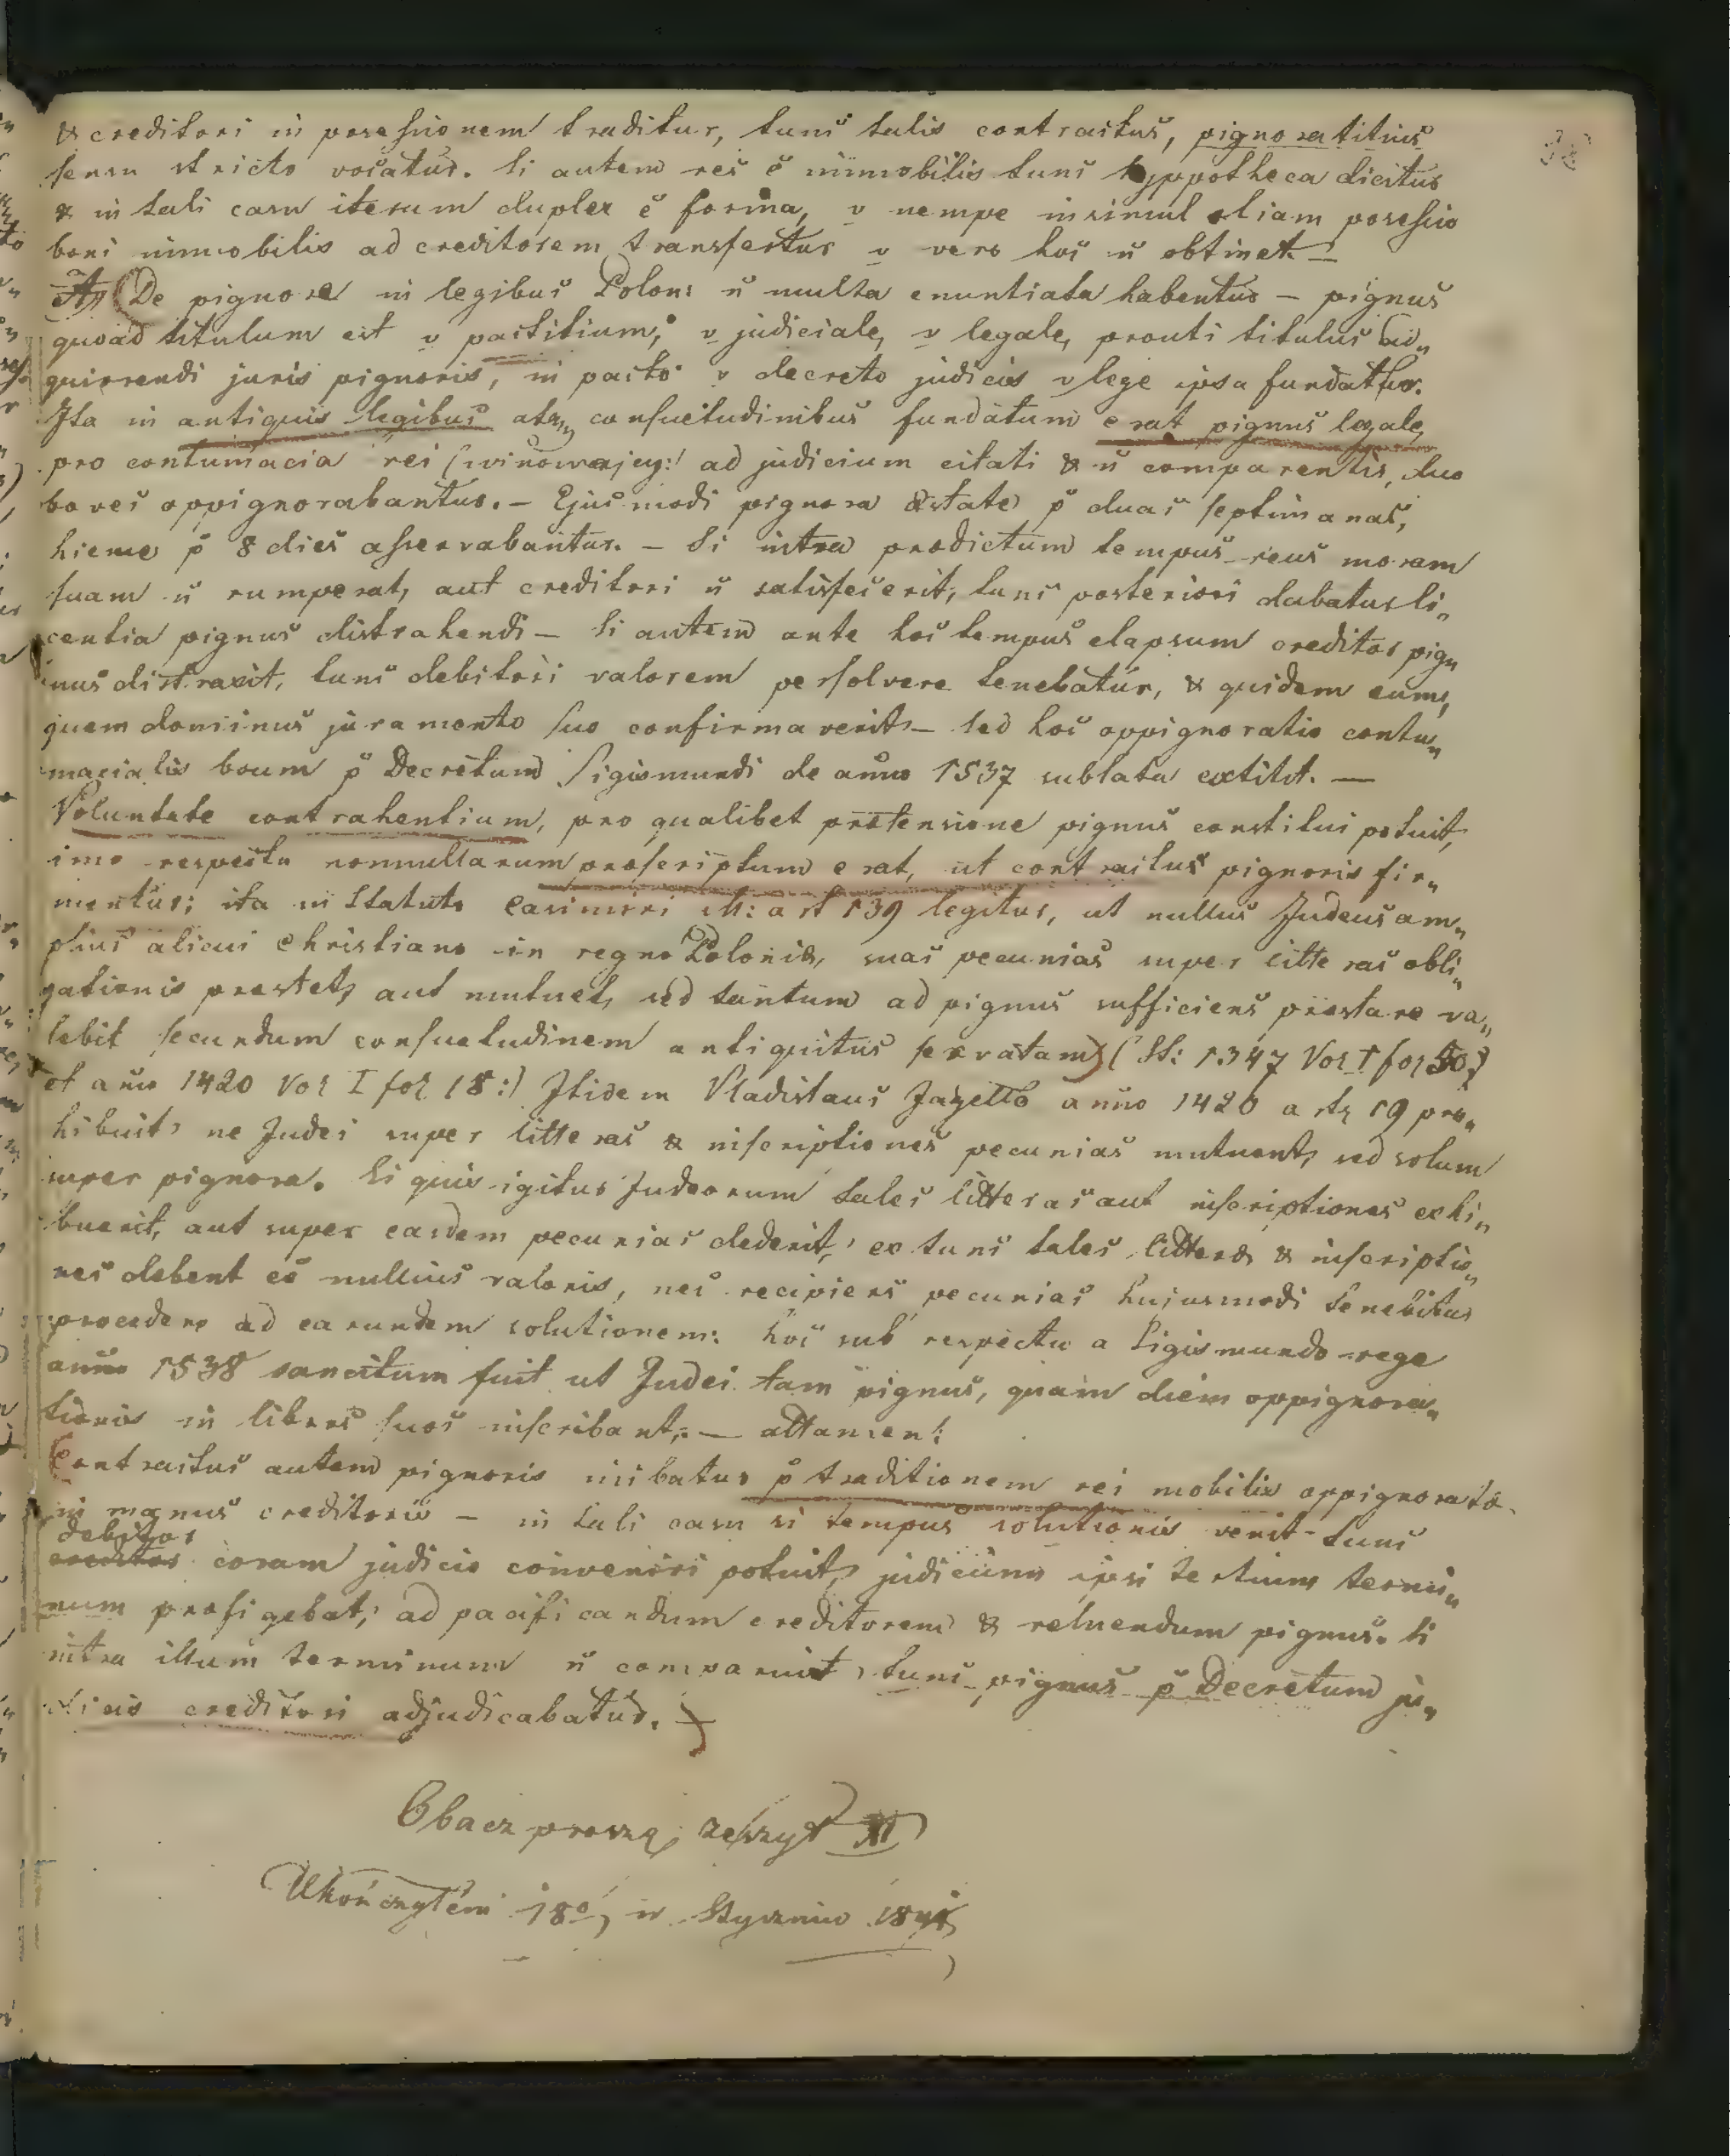 & creditori in possessionem traditur, tunc talis contractus, pignoratitius
sensu stricto vocatur. Si autem res ẽ immobilis tunc hyppotheca dicitur
& in tali casu iterum duplex ẽ forma, v nempe insimul etiam possessio
boni immobilis ad creditorem transfertur v vero hoc ñ obtinet —
(De pignore in legibus Polon: ñ multa enuntiata habentur — pignus
quoad titulum est v pactitium, v judiciale, v legale, prouti titulus ad„
quirrendi juris pignoris, in pacto v decreto judicis v lege ipsa fundatur.
Ita in antiquis legibus atq„ consuetudinibus fundatum erat pignus legale,
pro contumacia rei (winowajcy:) ad judicium citati & ñ comparentis, duo
boves oppignorabantur. — Ejusmodi pignora æstate p̃ duas septimanas,
hieme p̃ 8 dies asservabantur. — Si intra prædictum tempus reus moram
suam ñ rumperat, aut creditori ñ satisfecerit, tunc posteriori dabatur li„
centia pignus distrahendi — Si autem ante hoc tempus elapsum creditor pig„
nus distraxit, tunc debitori valorem persolvere tenebatur, & quidem eum,
quem dominus juramento suo confirmaverit — Sed hoc oppignoratio contu„
macialis boum p̃ Decretum Sigismundi de anno 1537 sublata extitit. —
Voluntate contrahentium, pro qualibet prætensione pignus constitui potuit,
imo respectu nonnullarum præscriptum erat, ut contractus pignoris fir„
mentur; ita in Statuto Casimiri M: art 139 legitur, ut nullus Judeus am„
plius alicui Christiano in regno Poloniæ, suas pecunias super litteras obli„
gationis prestet, aut mutuet, sed tantum ad pignus sufficiens præstare va„
lebit secundum consuetudinem antiquitus servatam) (St: 1347 Vol I fol 50)
et año 1420 Vol I fol 18:) Itidem Vladislaus Jagello anno 1420 art 19 pro„
hibuit, ne Judei super litteras & inscriptiones pecunias mutuent, sed solum
super pignora. Si quis igitur Judæorum tales litteras aut inscriptiones exhi„
buerit, aut super easdem pecunias dederit, ex tunc tales litteræ & inscriptio„
nes debent eẽ nullius valoris, nec recipiens pecunias hujusmodi tenebitur
procedere ad earundem solutionem: hoc sub respectu a Sigismundo rege
anno 1538 sancitum fuit ut Judei tam pignus, quam diem oppignora„
tionis in libros suos inscribant; — attamen:
Contractus autem pignoris inibatur p̃ traditionem rei mobilis oppignoratæ
in manus creditoris — in tali casu si tempus solutionis venit tunc
debitor
creditor coram judicio conveniri potuit, judicium ipsi tertium termi„
num præfigebat, ad pacificandum creditorem & reluendum pignus. Si
intra illum terminum ñ comparuit, tunc pignus p̃ Decretum ju„
dicis creditori adjudicabatur. —)
Obacz proszę, zeszyt XI
Ukończyłem 18º, w Styczniu